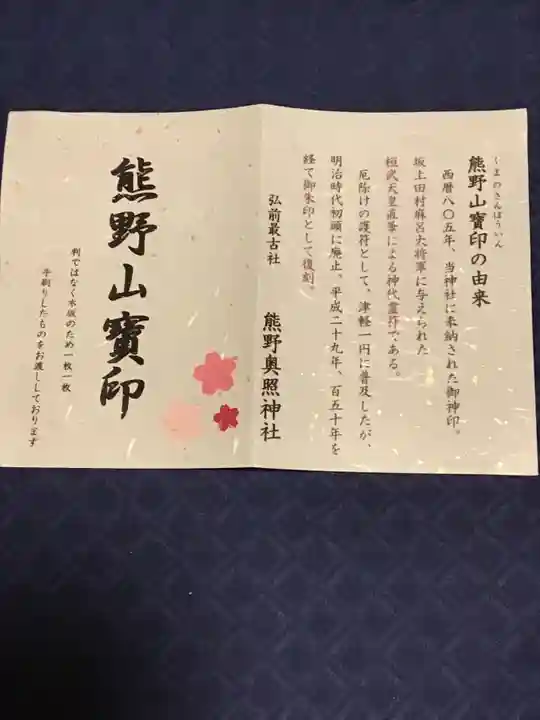 くまのさんぽういん
熊野山寶印の由来
西暦八〇五年、当神社に奉納された御神印。
坂上田村麻呂大将軍に与えられた
桓武天皇直筆による神代霊符である。
厄除けの護符として、津軽一円に普及したが、
明治時代初頭に廃止。平成二十九年、百五十年を
経て御朱印として復刻。
弘前最古社
熊野奥照神社
熊野山寶印
判ではなく木版のため一枚一枚
手刷りしたものをお渡ししております